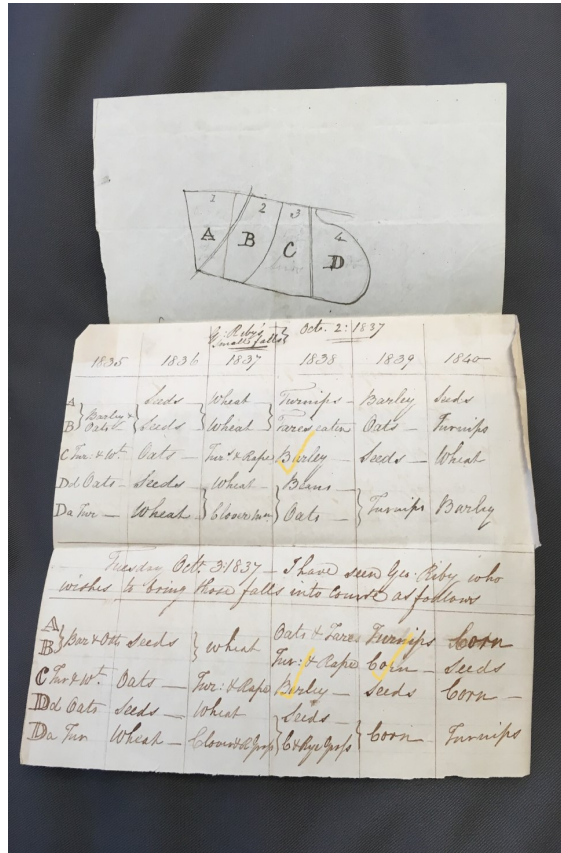 1 2 3 4
A B C D
G: Riby's } Oct. 2: 1837
Small falls
1835 1836 1837 1838 1839 1840
A } Barley & Seeds } Wheat { Turnips Barley Seeds
B } Oats Seeds } Wheat { Tares eaten Oats Turnips
C Tur: & Wt. Oats Tur: & Rape Barley Seeds Wheat
Dd Oats Seeds Wheat Beans } Turnips Barley
Da Tur Wheat Clover Oats
Tuesday Oct. 3: 1837 – I have seen Geo. Riby who
wishes to bring those falls into course as follows
A } Bar & Oats Seeds } Wheat Oats & Tares Turnips Corn
B Tur: & Rape Corn Seeds
C Tur & Wt. Oats Tur: & Rape Barley Seeds Corn
Dd Oats Seeds Wheat Seeds
Da Tur Wheat Clover & R Grass C & Rye Grass } Corn Turnips